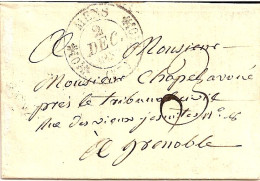 MENS
2
DEC.
A Monsieur
Monsieur Chapel avoué
près le tribunal civil
rue des vieux jesuites N°
à Grenoble